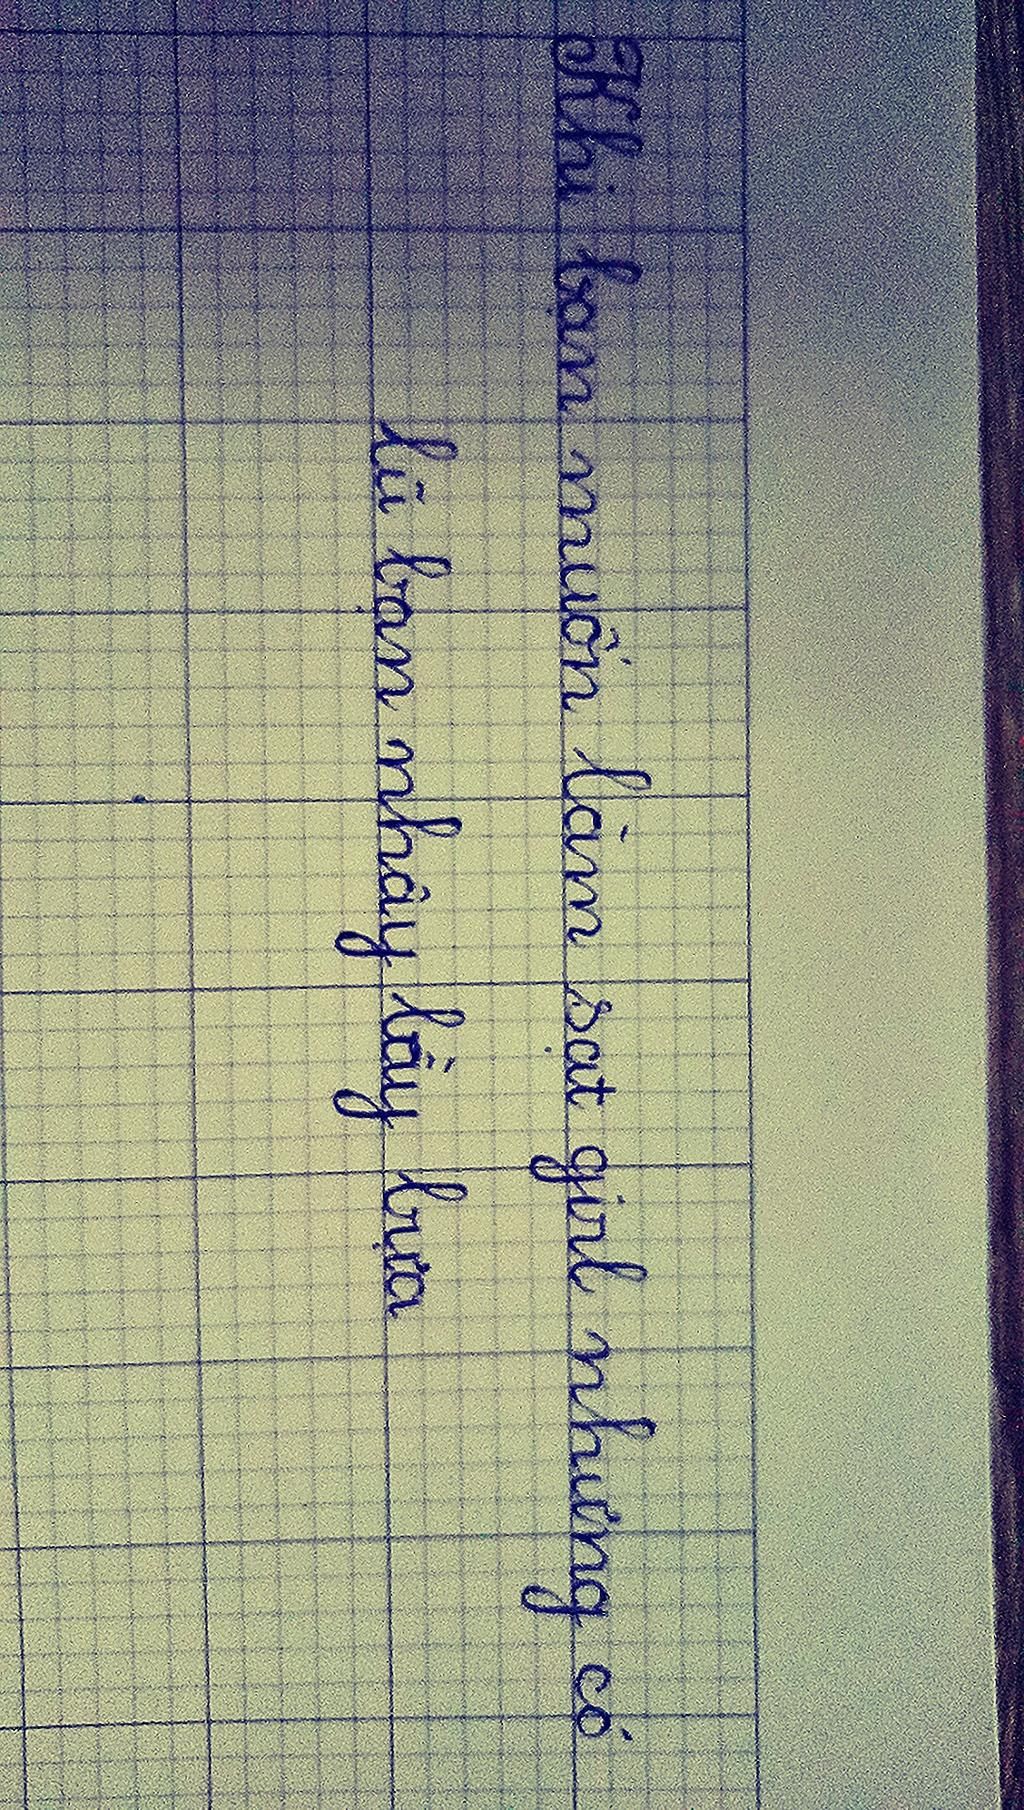 Khi bạn muốn làm sạt girl nhưng có
lũ bạn nhây lầy bựa